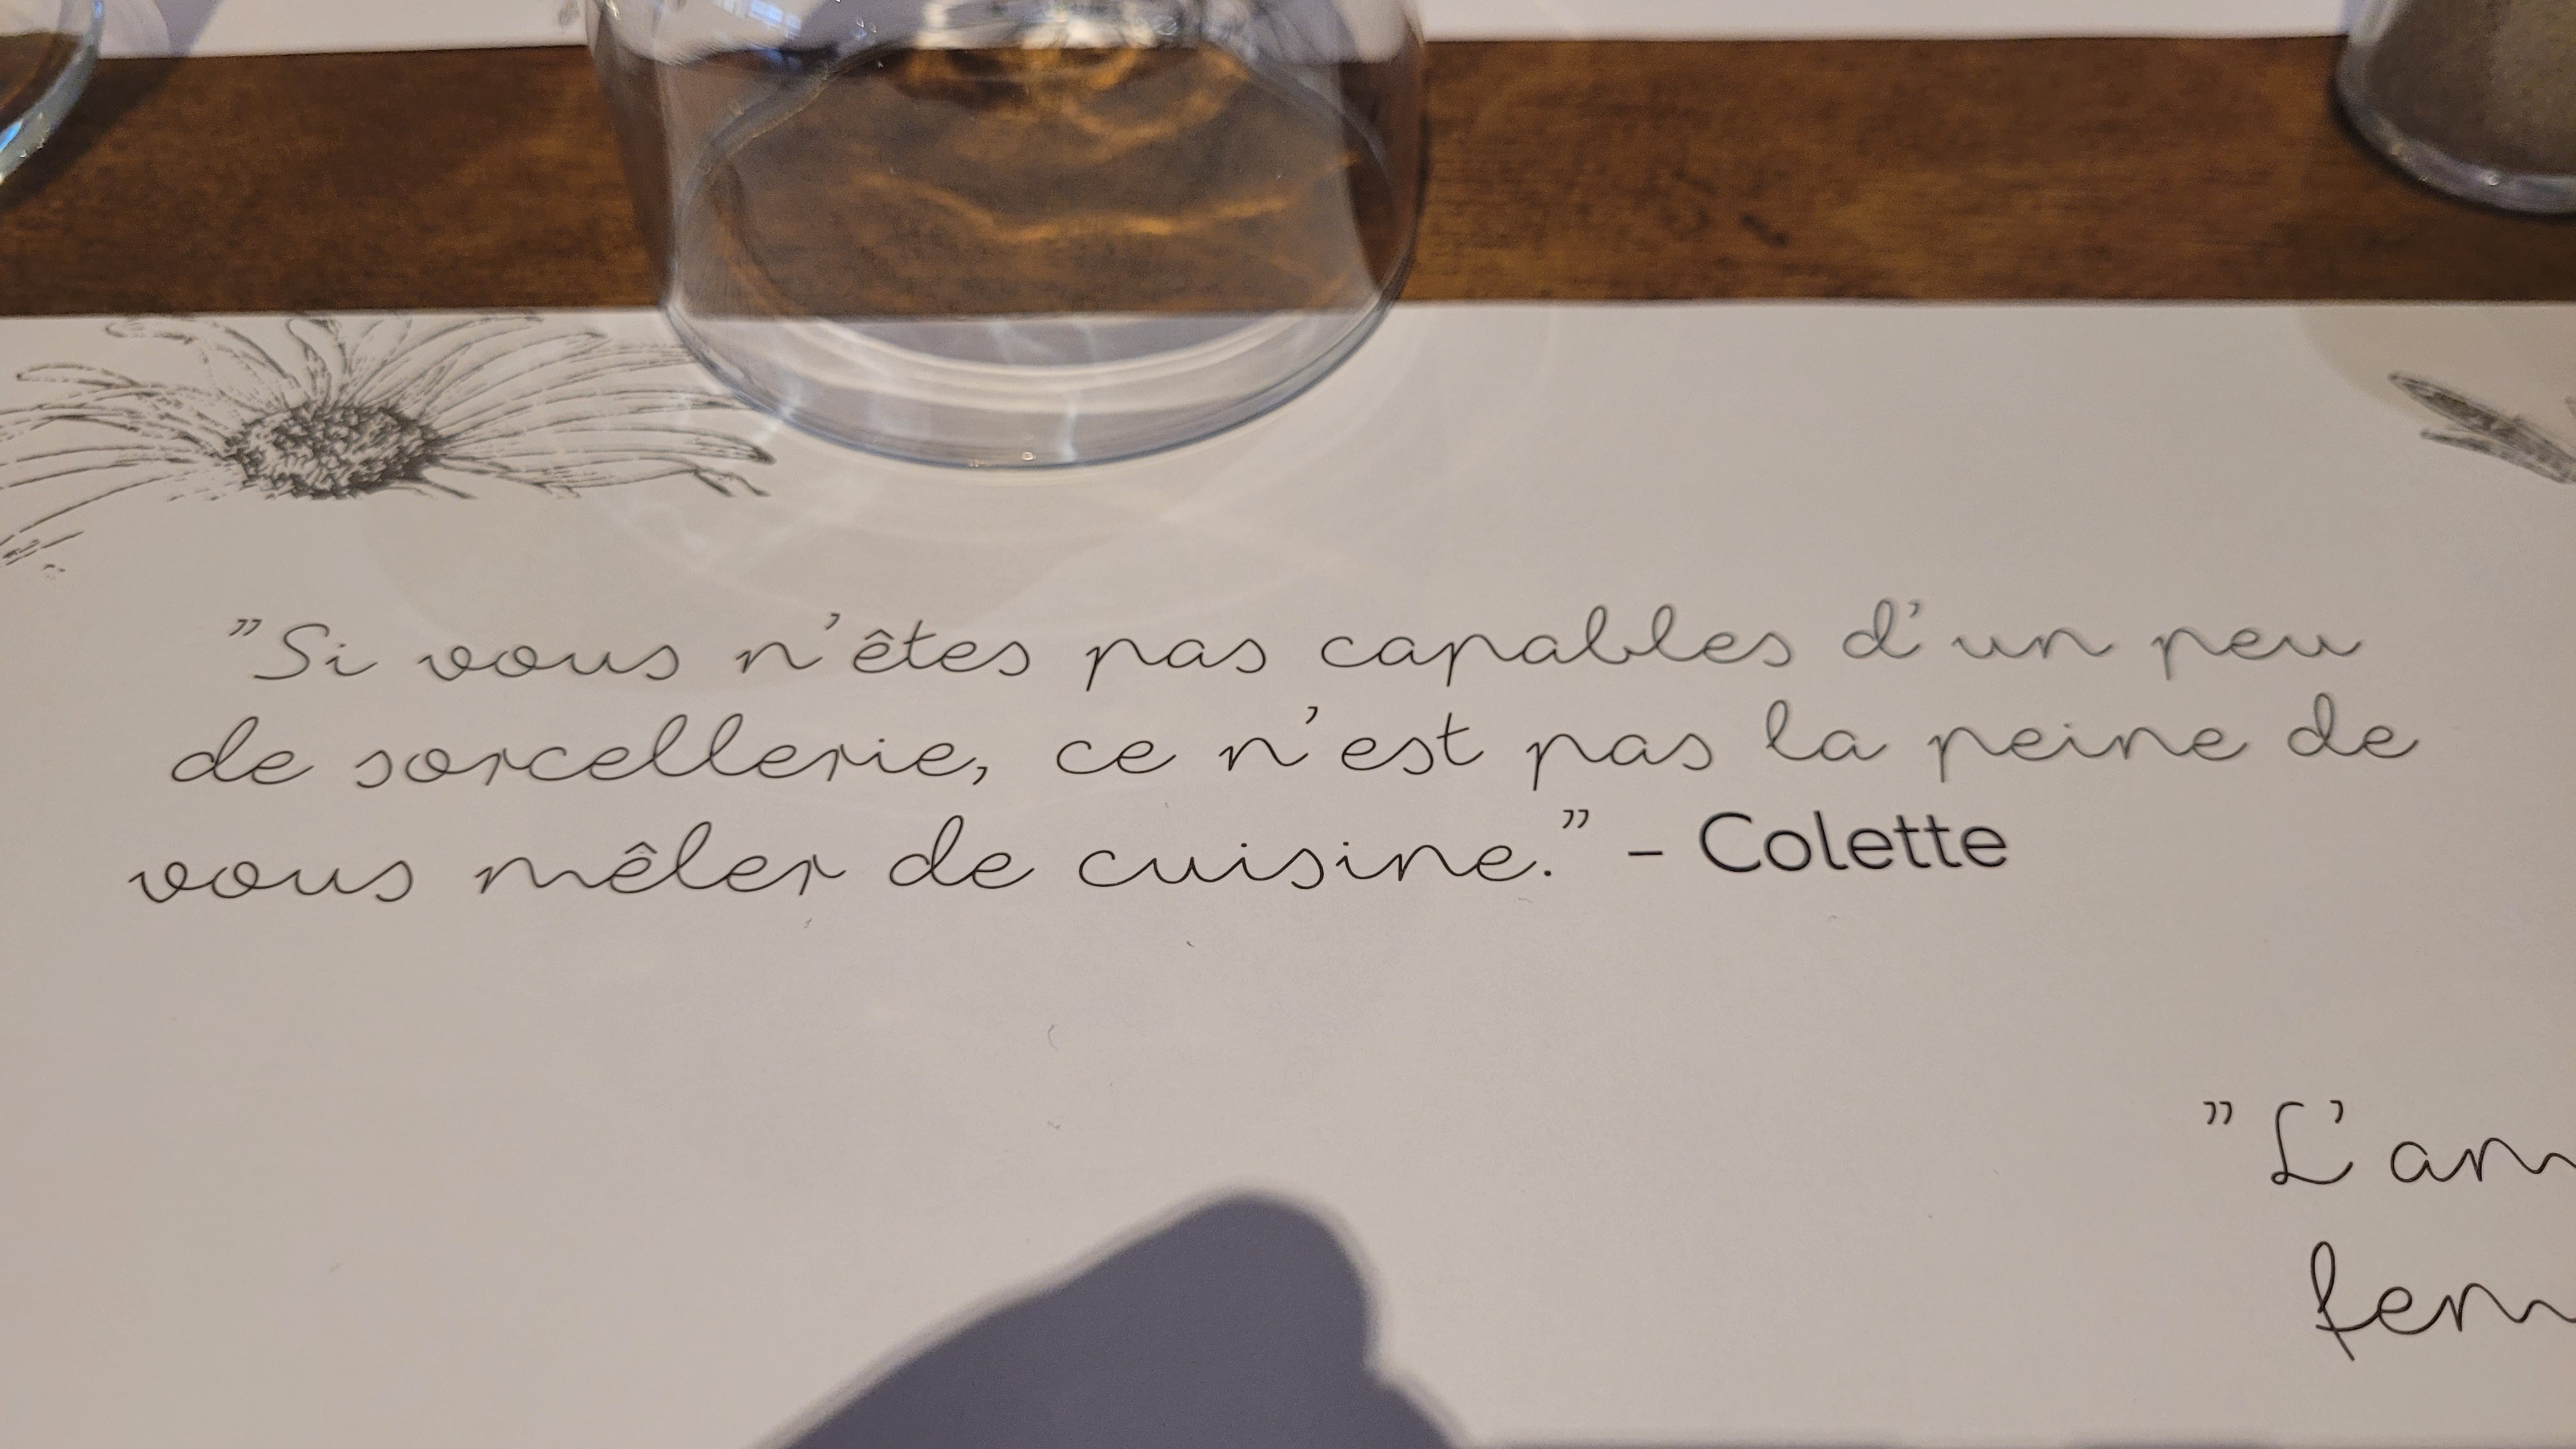 ”Si vous n’êtes pas capables d’un peu
de sorcellerie, ce n’est pas la peine de
vous mêler de cuisine.” – Colette
”L’